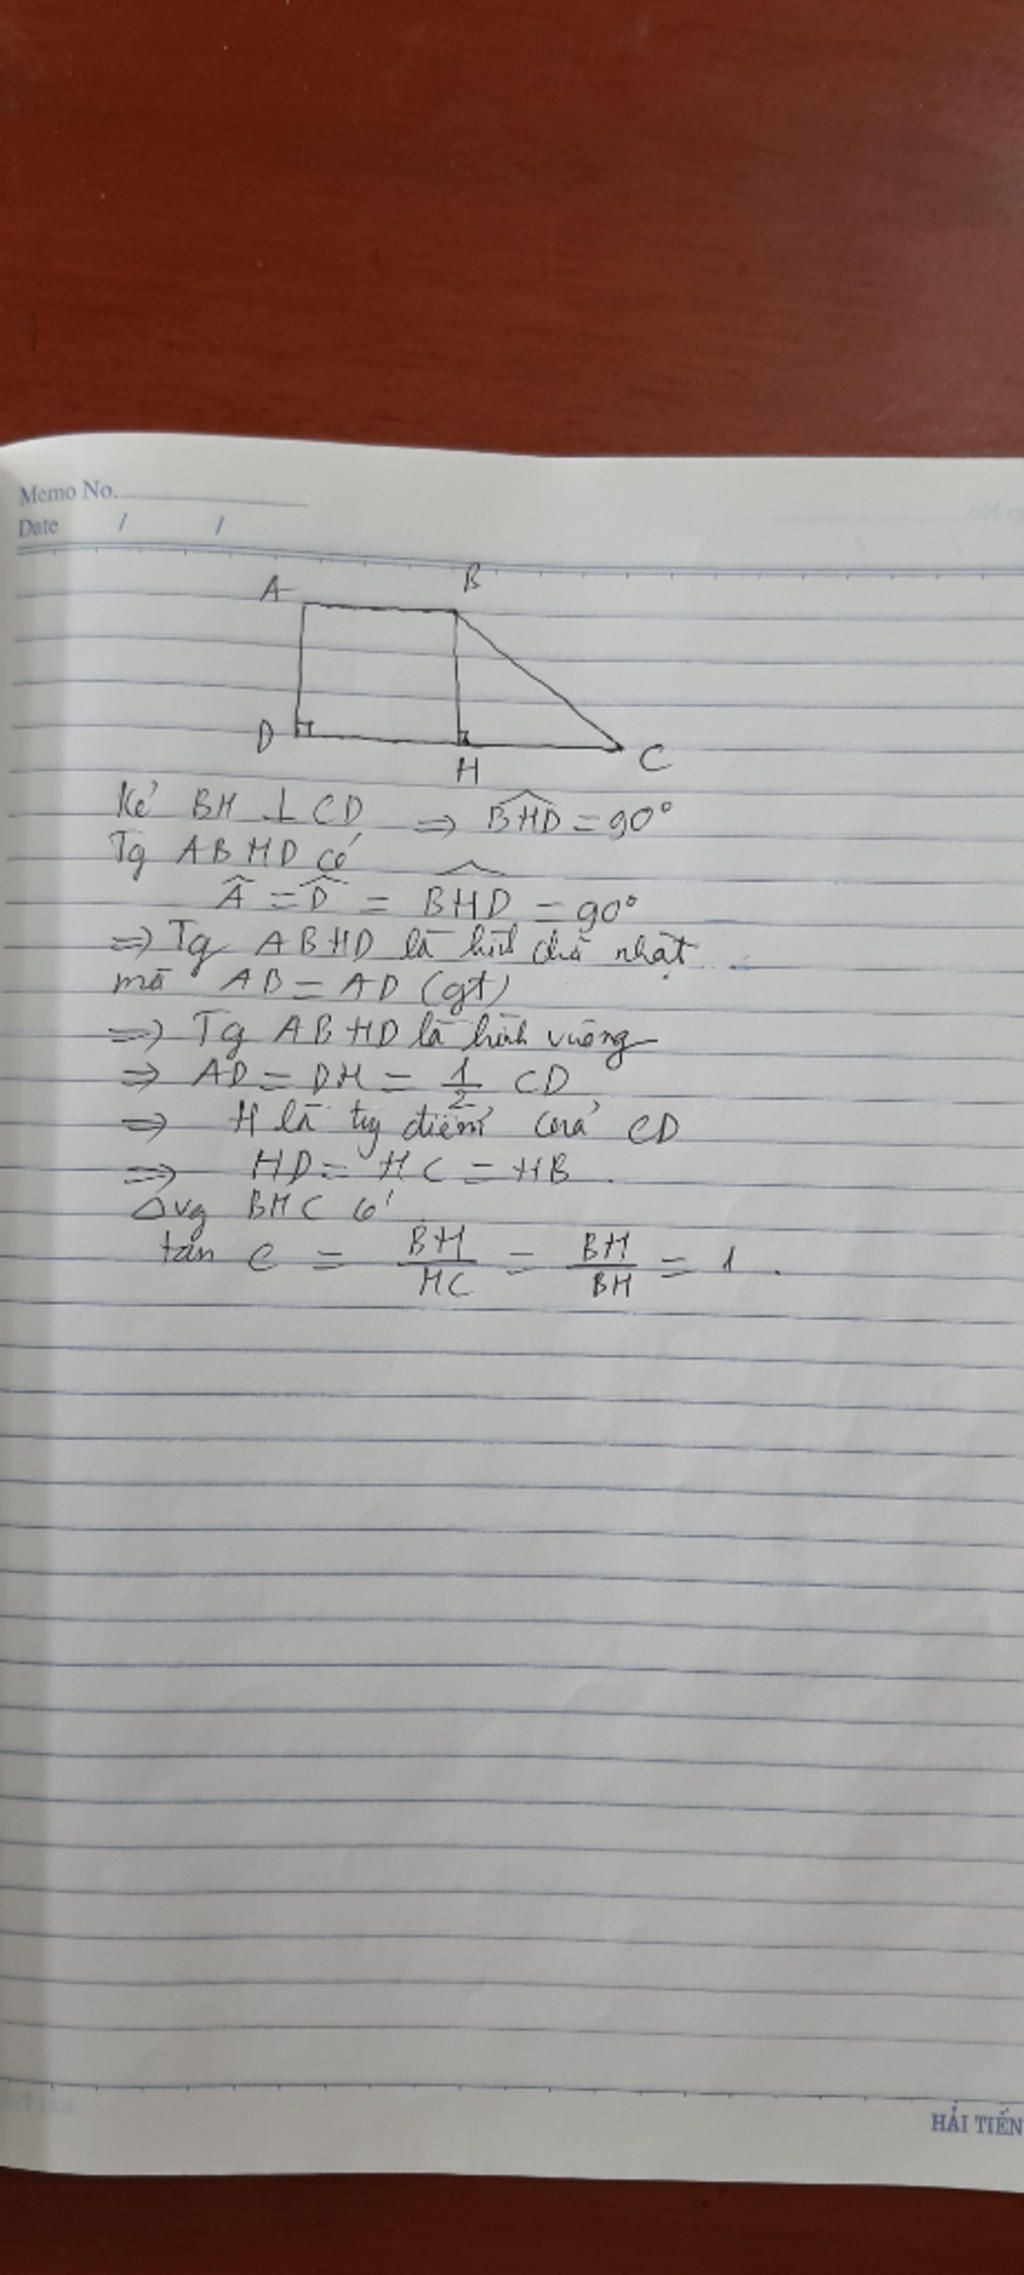 Memo No.
Date / /
A B
D H C
Kẻ BH ⊥ CD ⇒ BHD = 90°
Tg ABHD có
Â = D̂ = BHD = 90°
⇒ Tg ABHD là hình chữ nhật
mà AB = AD (gt)
⇒ Tg ABHD là hình vuông
⇒ AD = DH = 1/2 CD
⇒ H là tg điểm của CD
⇒ HD = HC = HB.
Δvg BHC có
tan C = BH/HC = BH/BH = 1.
HẢI TIẾN